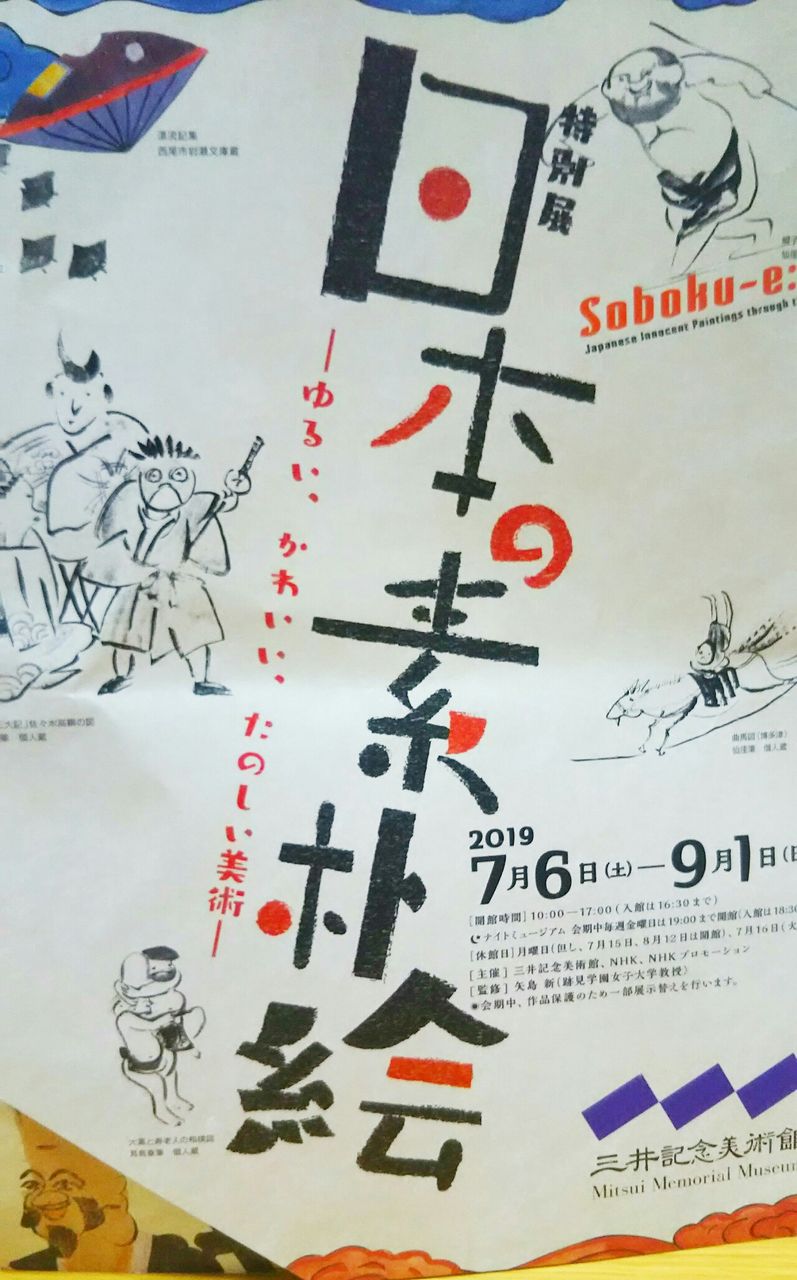 特別展
日本の素朴絵
―ゆるい、かわいい、たのしい美術―
Soboku-e:
Japanese Innocent Paintings through
漂流記集
西尾市岩瀬文庫蔵
佐々木高綱の図
個人蔵
曲馬図(博多津)
仙厓筆 個人蔵
2019
7月6日(土)―9月1日
[開館時間]10:00―17:00(入館は16:30まで)
ナイトミュージアム 会期中毎週金曜日は19:00まで開館(入館は18:30
[休館日]月曜日(但し、7月15日、8月12日は開館)、7月16日(火
[主催]三井記念美術館、NHK、NHKプロモーション
[監修]矢島 新(跡見学園女子大学教授)
✺会期中、作品保護のため一部展示替えを行います。
大黒と寿老人の相撲図
個人蔵
三井記念美術館
Mitsui Memorial Museum